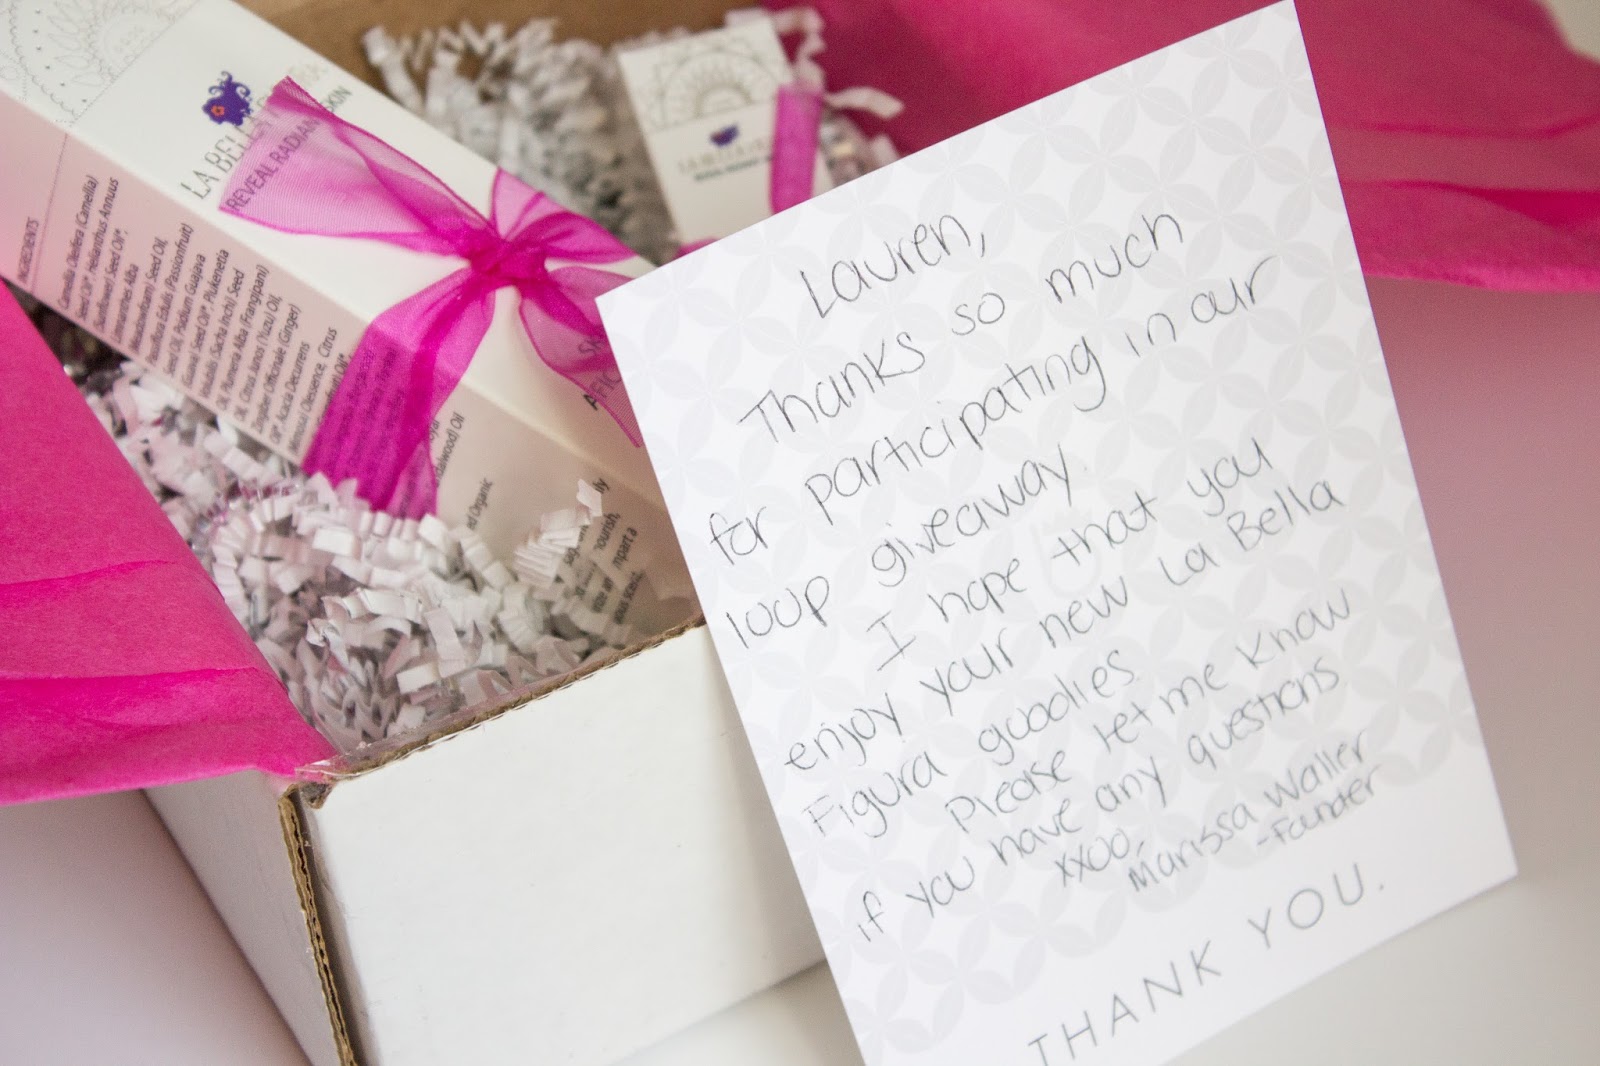 LA BELLA FIGURA
REVEAL RADIAN
SKIN
INGREDIENTS
Camellia Oleifera (Camellia)
Seed Oil*, Helianthus Annuus
(Sunflower) Seed Oil*,
Limnanthes Alba
(Meadowfoam) Seed Oil,
Passiflora Edulis (Passionfruit)
Seed Oil, Psidium Guajava
(Guava) Seed Oil*, Plukenetia
Volubilis (Sacha Inchi) Seed
Oil, Plumeria Alba (Frangipani)
Oil, Citrus Junos (Yuzu) Oil,
Zingiber Officinale (Ginger)
Oil*, Acacia Decurrens
(Mimosa) Oleoresin, Citrus
Oil*
Oil
Organic
Lauren,
Thanks so much
for participating in our
loop giveaway.
I hope that you
enjoy your new La Bella
Figura goodies.
Please let me know
if you have any questions
xxoo,
Marissa Waller
-Founder
THANK YOU.